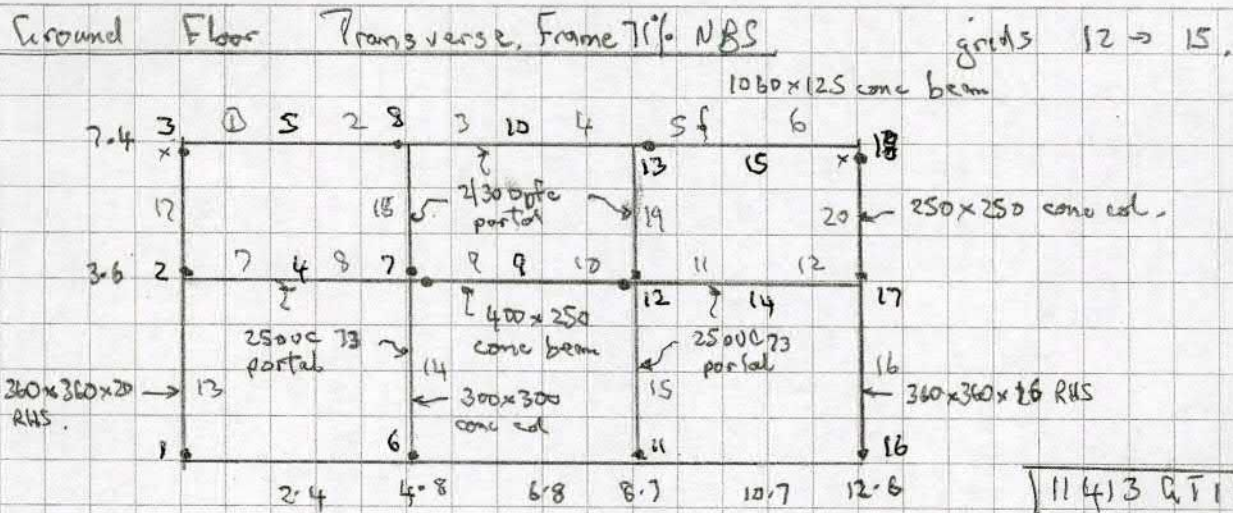 Ground Floor Transverse Frame 71% NBS grids 12 → 15.
1060 × 125 conc beam
7.4 3 1 5 2 8 3 10 4 5 6 18
x 13 15 x
17 18 2/300pfc portal 19 20 250 × 250 conc col.
3.6 2 7 4 8 7 9 9 10 11 12
12 14 17
400 × 250 conc beam
250UC 73 portal
250UC 73 portal
14 15 16
360×360×20 RHS. 13
300×300 conc col
360×360×16 RHS
1 6 11 16
2.4 4.8 6.8 8.7 10.7 12.6
11413 GT1